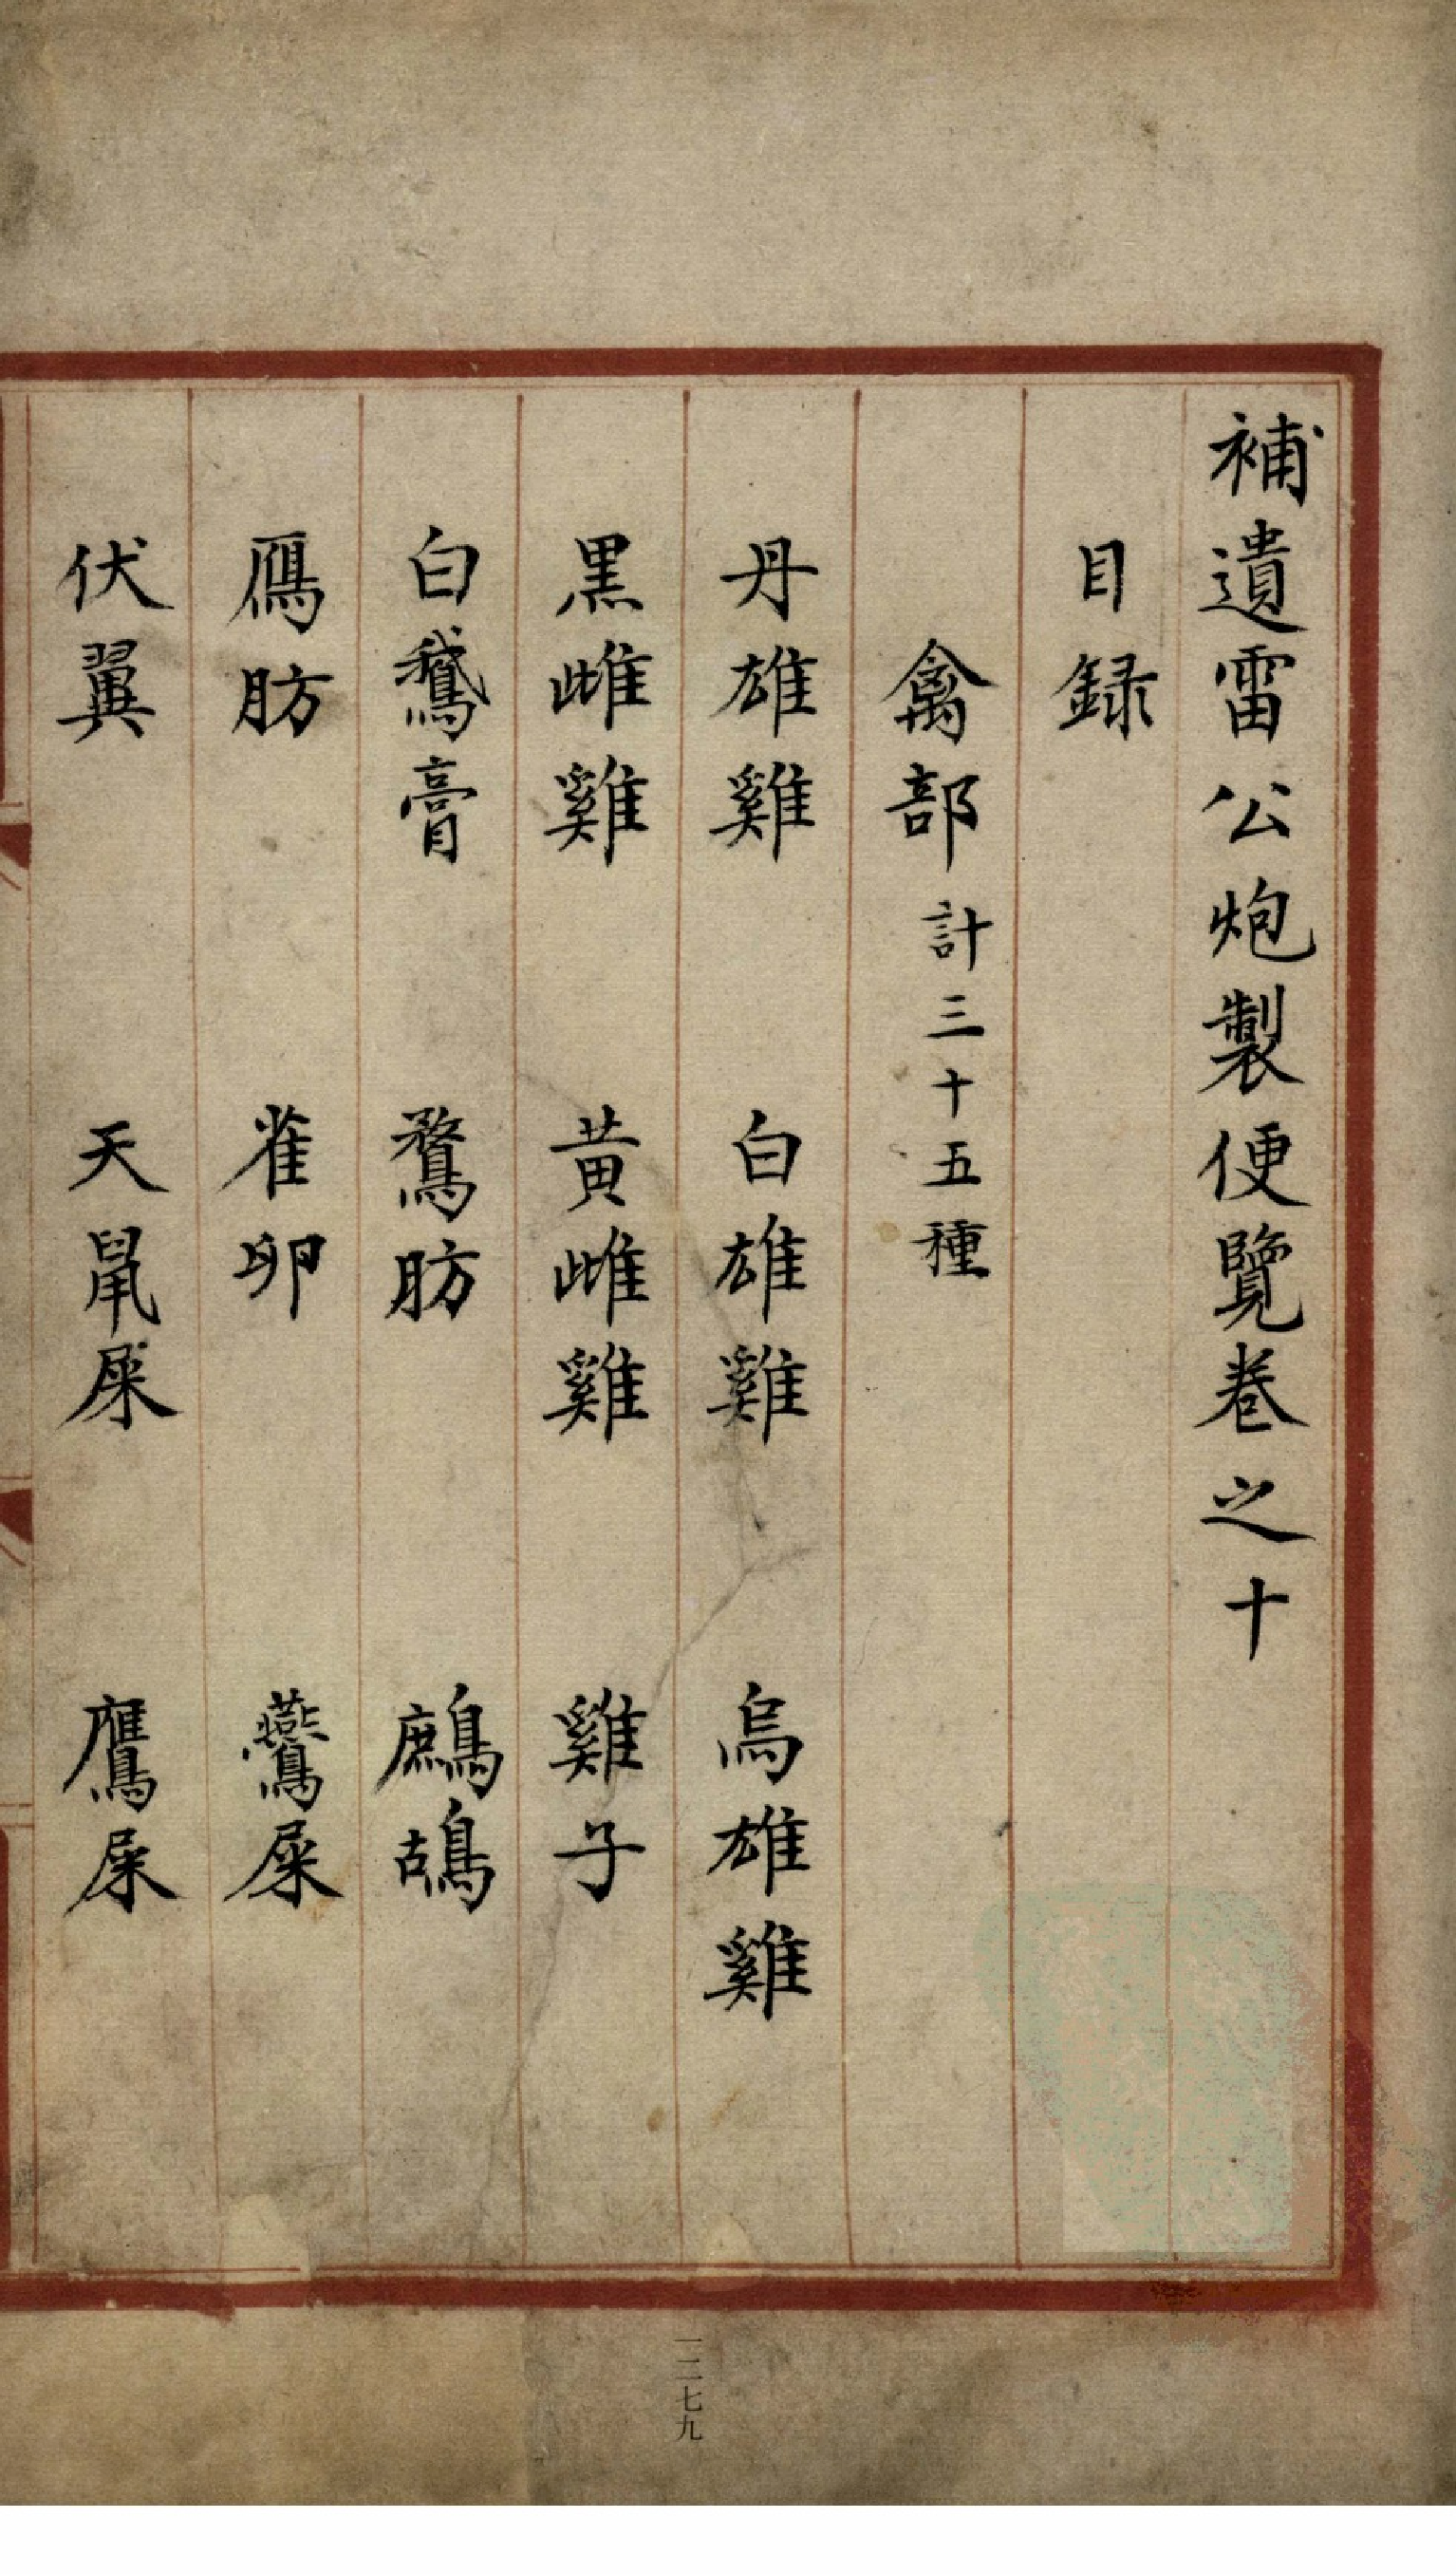 補遺雷公炮製便覽卷之十
目録
禽部計三十五種
丹雄雞　白雄雞　烏雄雞
黒雌雞　黃雌雞　雞子
白鵝膏　鶩肪　鷓鴣
鴈肪　雀卵　鷰屎
伏翼　天鼠屎　鷹屎
一二七九